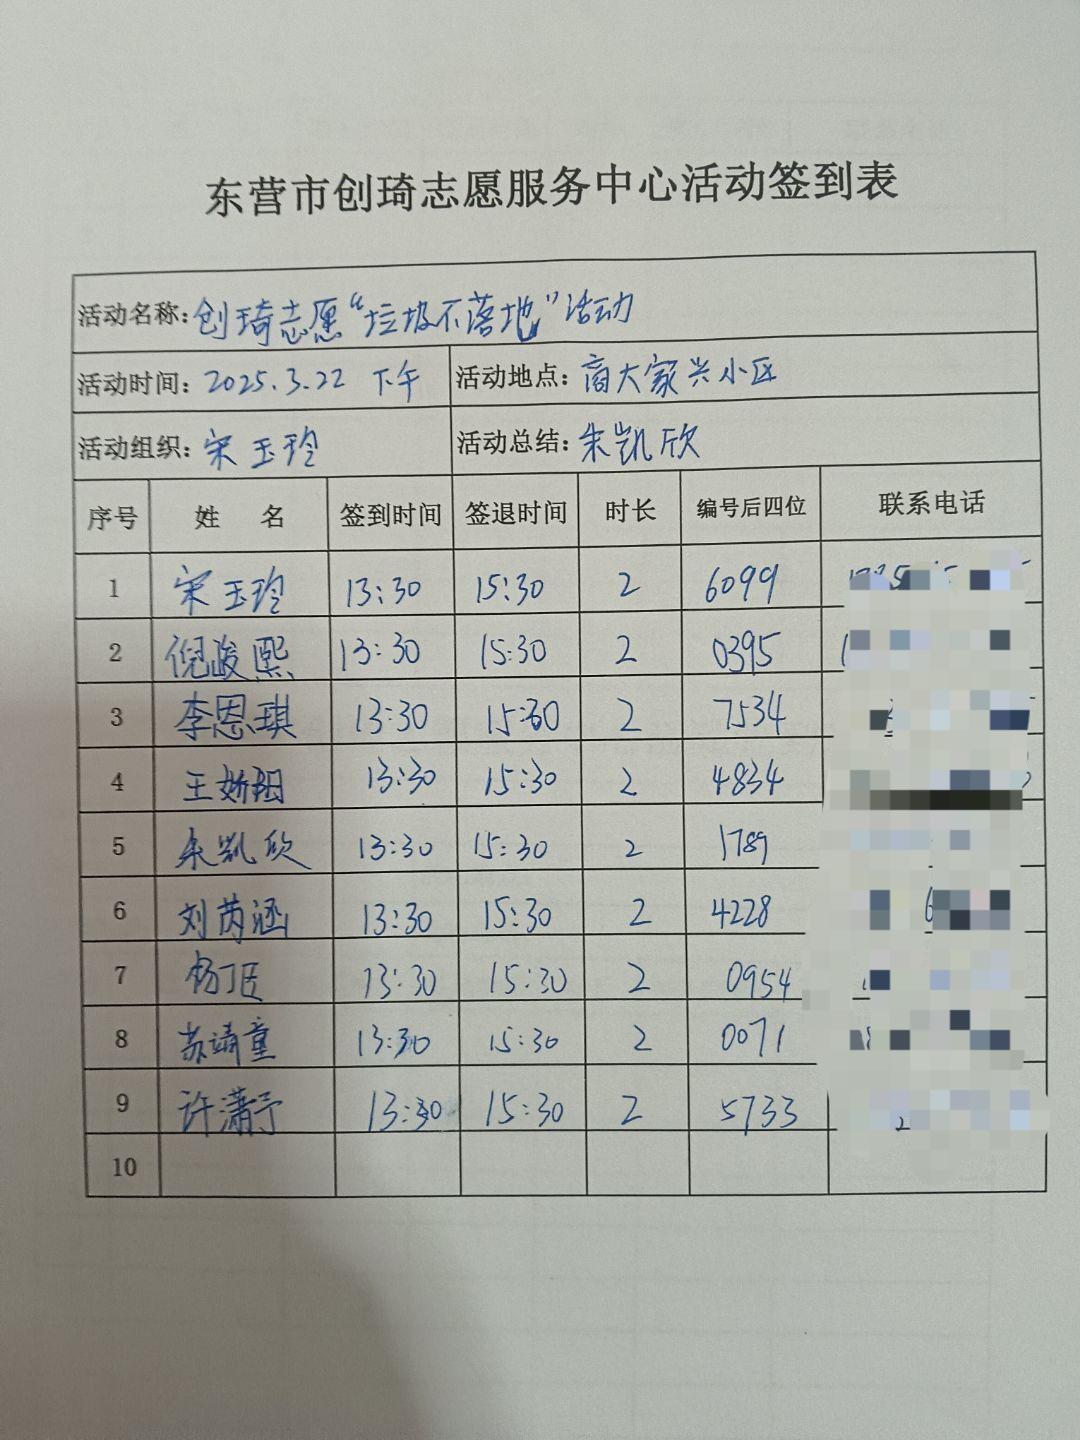 东营市创琦志愿服务中心活动签到表
活动名称：创琦志愿“垃圾不落地”活动
活动时间：2025.3.22 下午 活动地点：商大家兴小区
活动组织：宋玉玲 活动总结：朱凯欣
序号 姓 名 签到时间 签退时间 时长 编号后四位 联系电话
1 宋玉玲 13:30 15:30 2 6099
2 倪峻熙 13:30 15:30 2 0395
3 李恩琪 13:30 15:30 2 7534
4 王娇阳 13:30 15:30 2 4834
5 朱凯欣 13:30 15:30 2 1789
6 刘芮涵 13:30 15:30 2 4228
7 杨丁臣 13:30 15:30 2 0954
8 苏靖童 13:30 15:30 2 0071
9 许潇予 13:30 15:30 2 5733
10